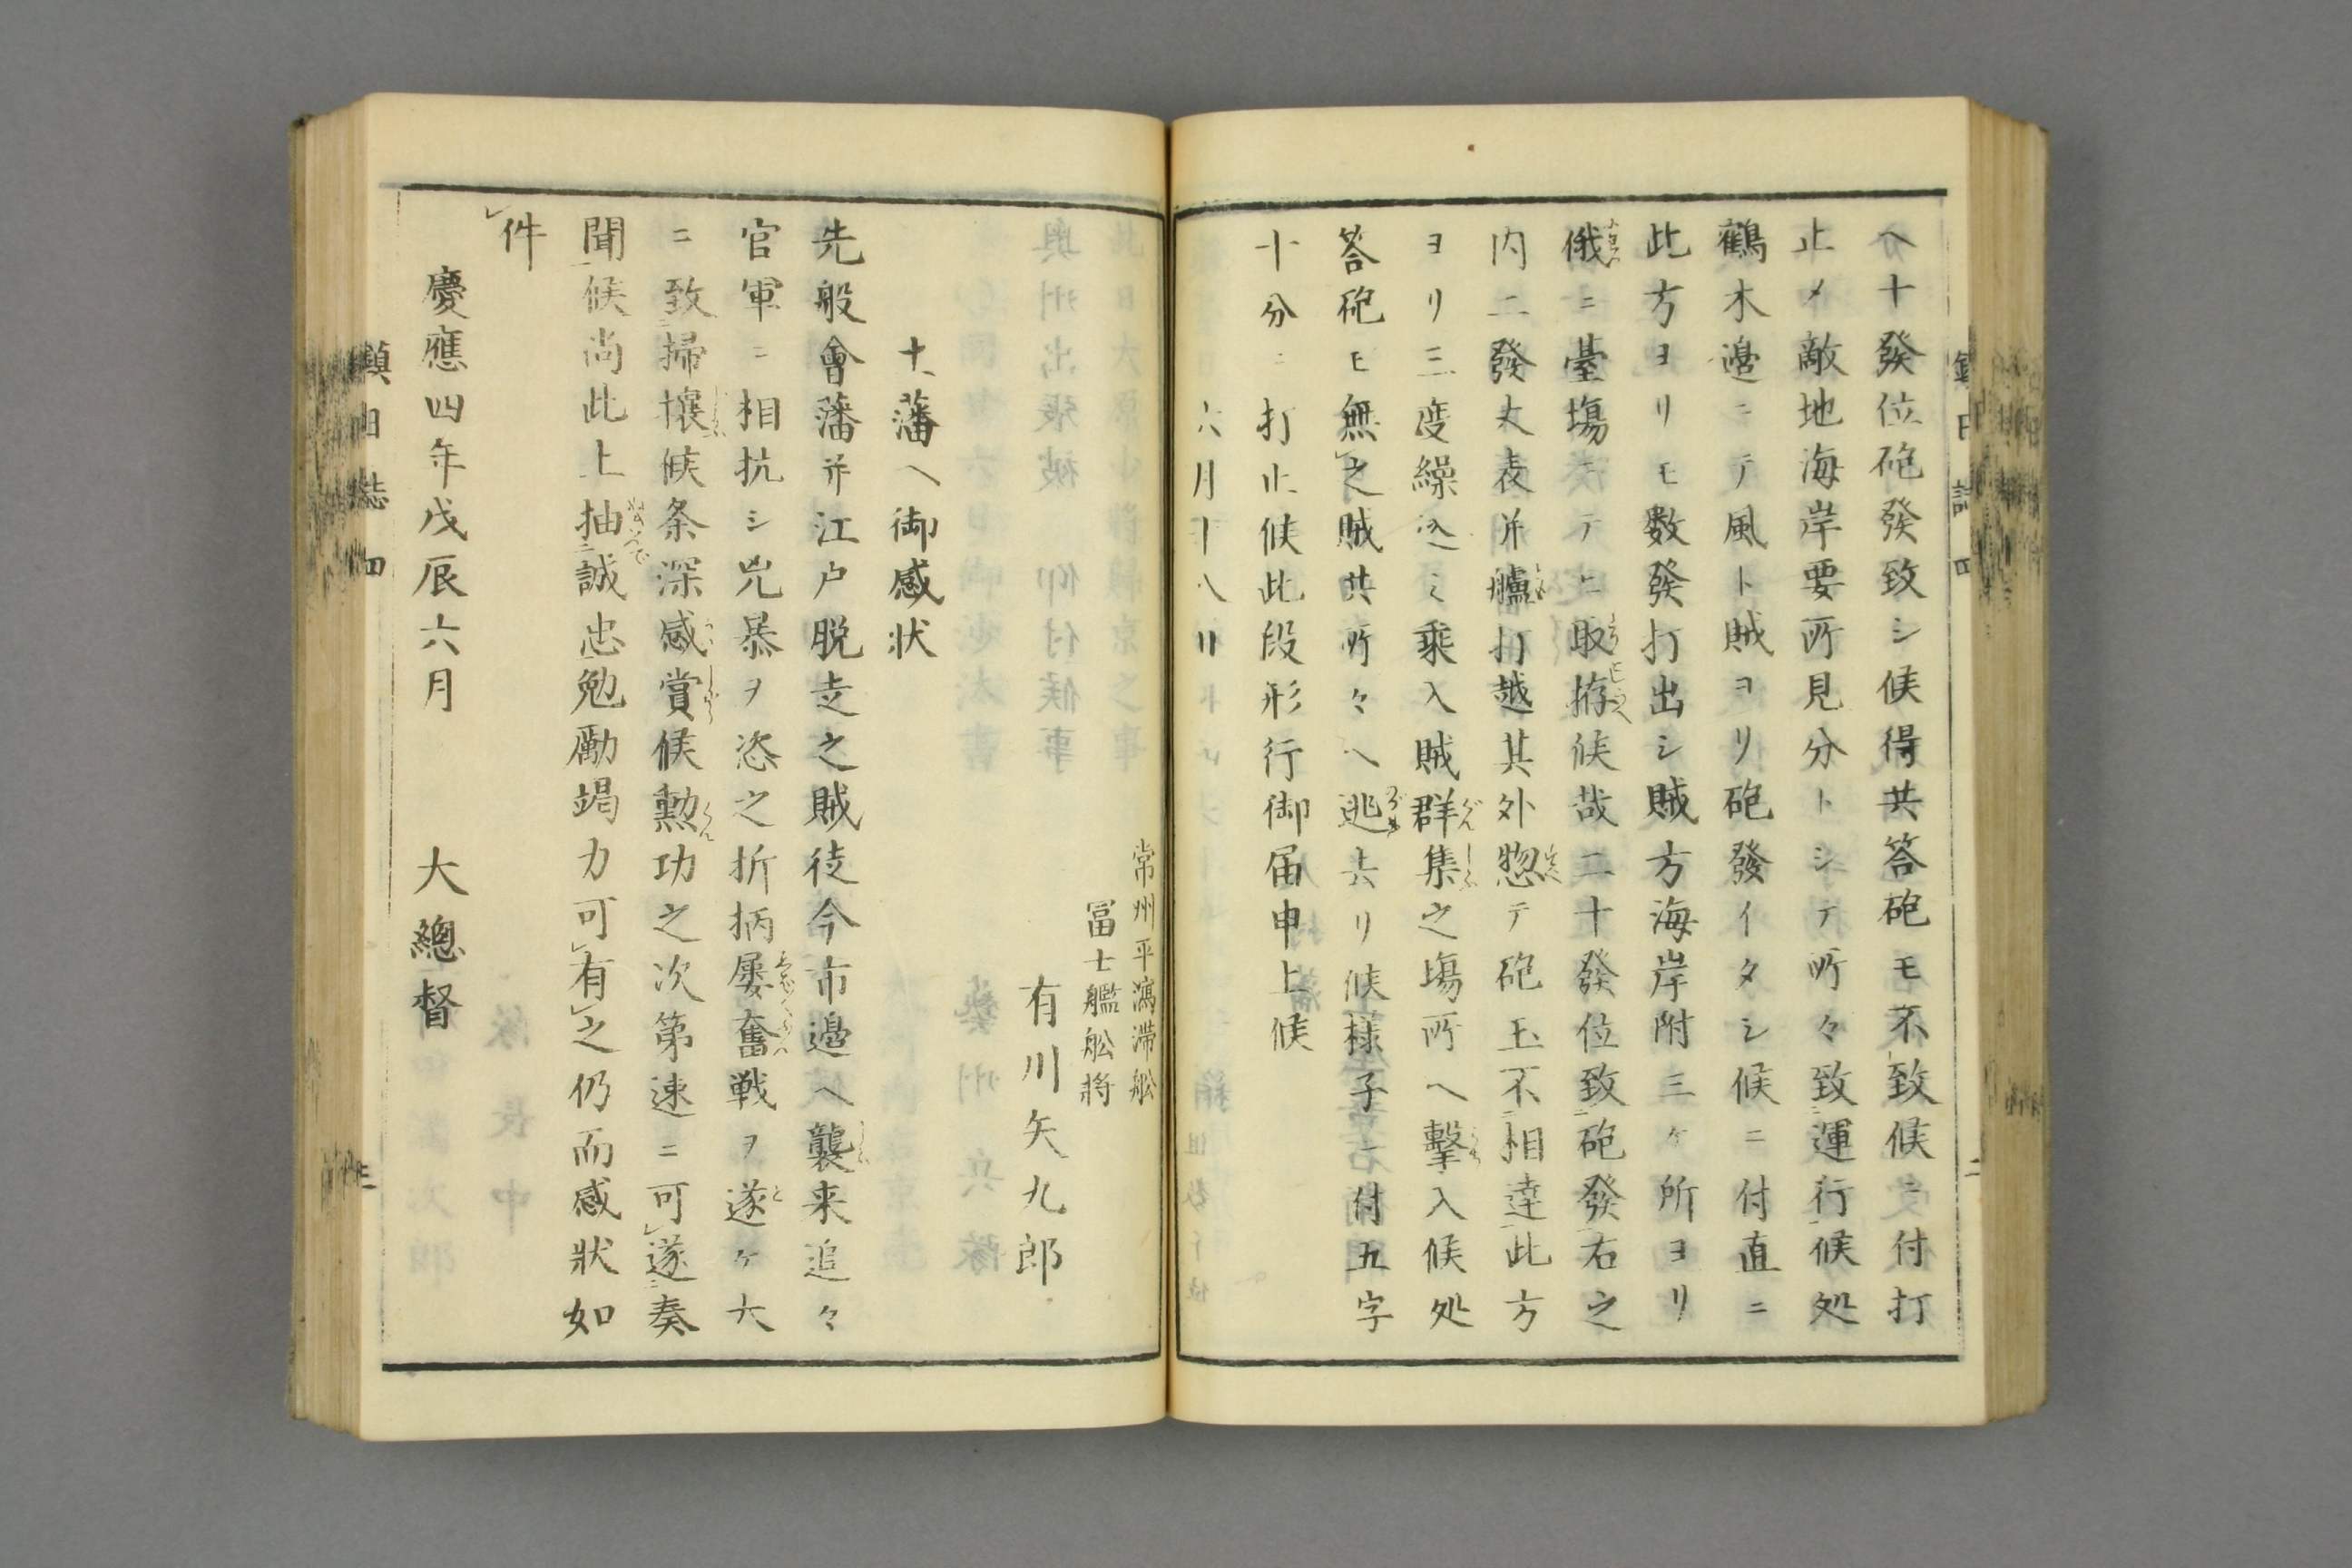 ヘ十發位砲發致シ候得共答砲モ不致候ニ付打
止メ敵地海岸要所見分トシテ所々致運行候処
鶴木邉ニテ風ト賊ヨリ砲發イタシ候ニ付直ニ
此方ヨリモ数發打出シ賊方海岸附三ケ所ヨリ
俄ニ臺塲ニテヒ取拵候哉二十發位致砲發右之
内二發丈表并艫打越其外惣テ砲玉不相達此方
ヨリ三度繰込ミ乘入賊群集之塲所ヘ擊入候処
答砲モ無之賊共所々ヘ逃去リ候樣子ニ付五字
十分ニ打止候此段形行御届申上候
六月十八日
常州平潟滞舩
冨士艦舩將
有川矢九郎
十一藩ヘ御感状
先般會藩并江户脱走之賊徒今市邉ヘ襲来追々
官軍ニ相抗シ兇暴ヲ恣之折柄屡奮戦ヲ遂ケ大
ニ致掃攘候条深感賞候勲功之次第速ニ可遂奏
聞候尚此上抽誠忠勉勵竭力可有之仍而感狀如
件
慶應四年戊辰六月 大總督
鎮日誌四 二
鎮日誌四 三